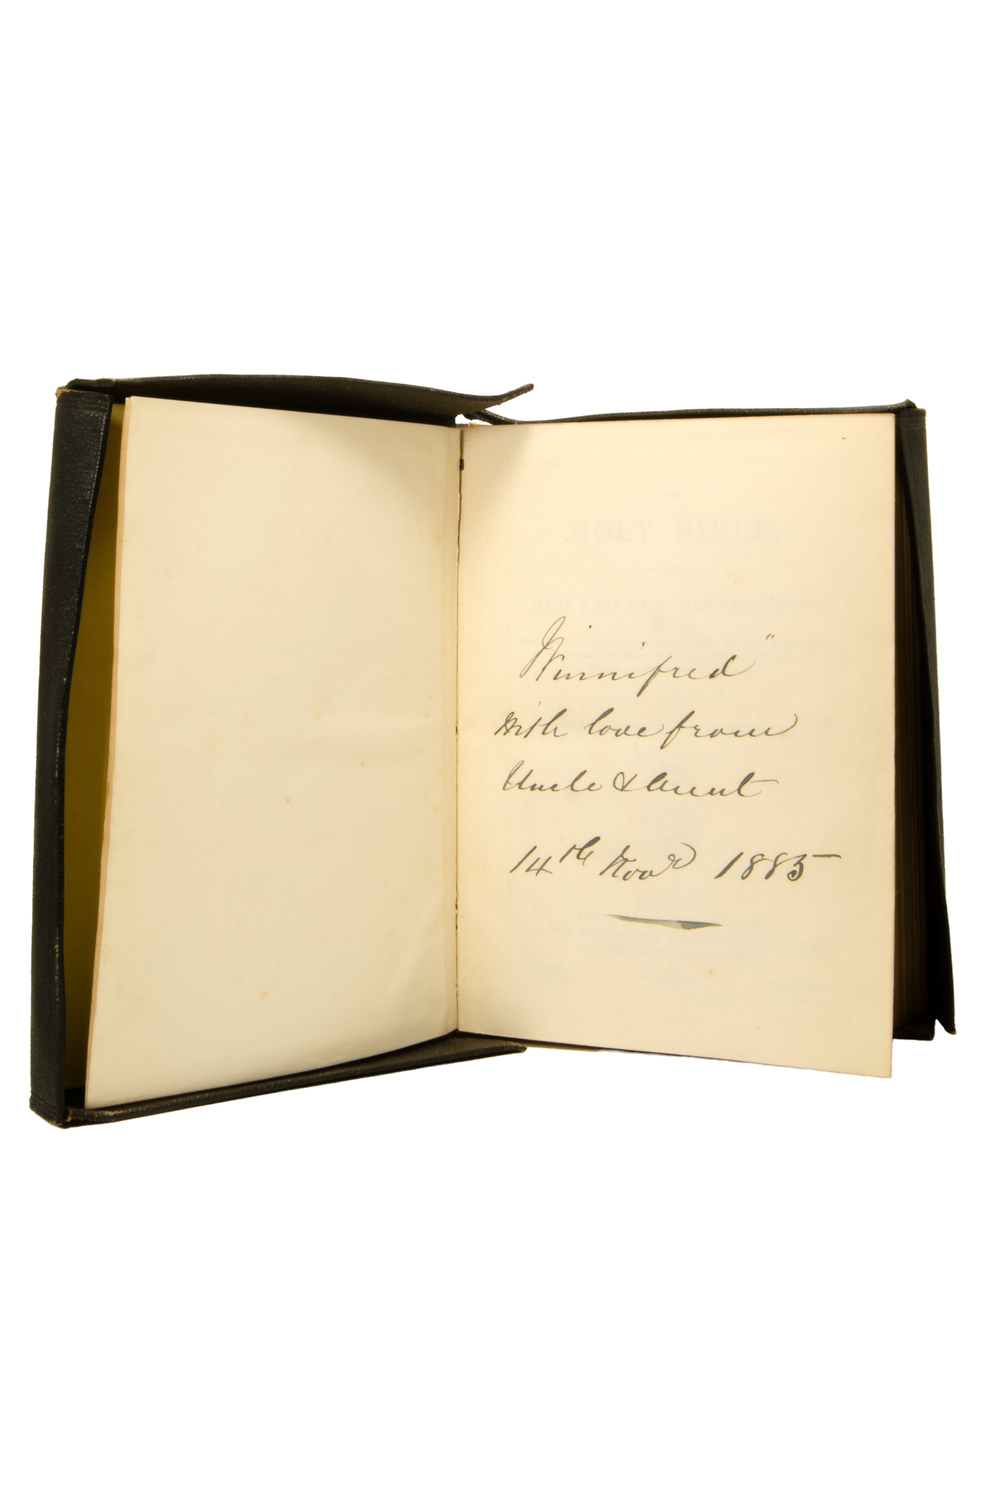 THE
HOLY BIBLE,
OLD AND NEW TESTAMENTS
"Winnifred"
With love from
Uncle & Aunt
14th Novr 1885